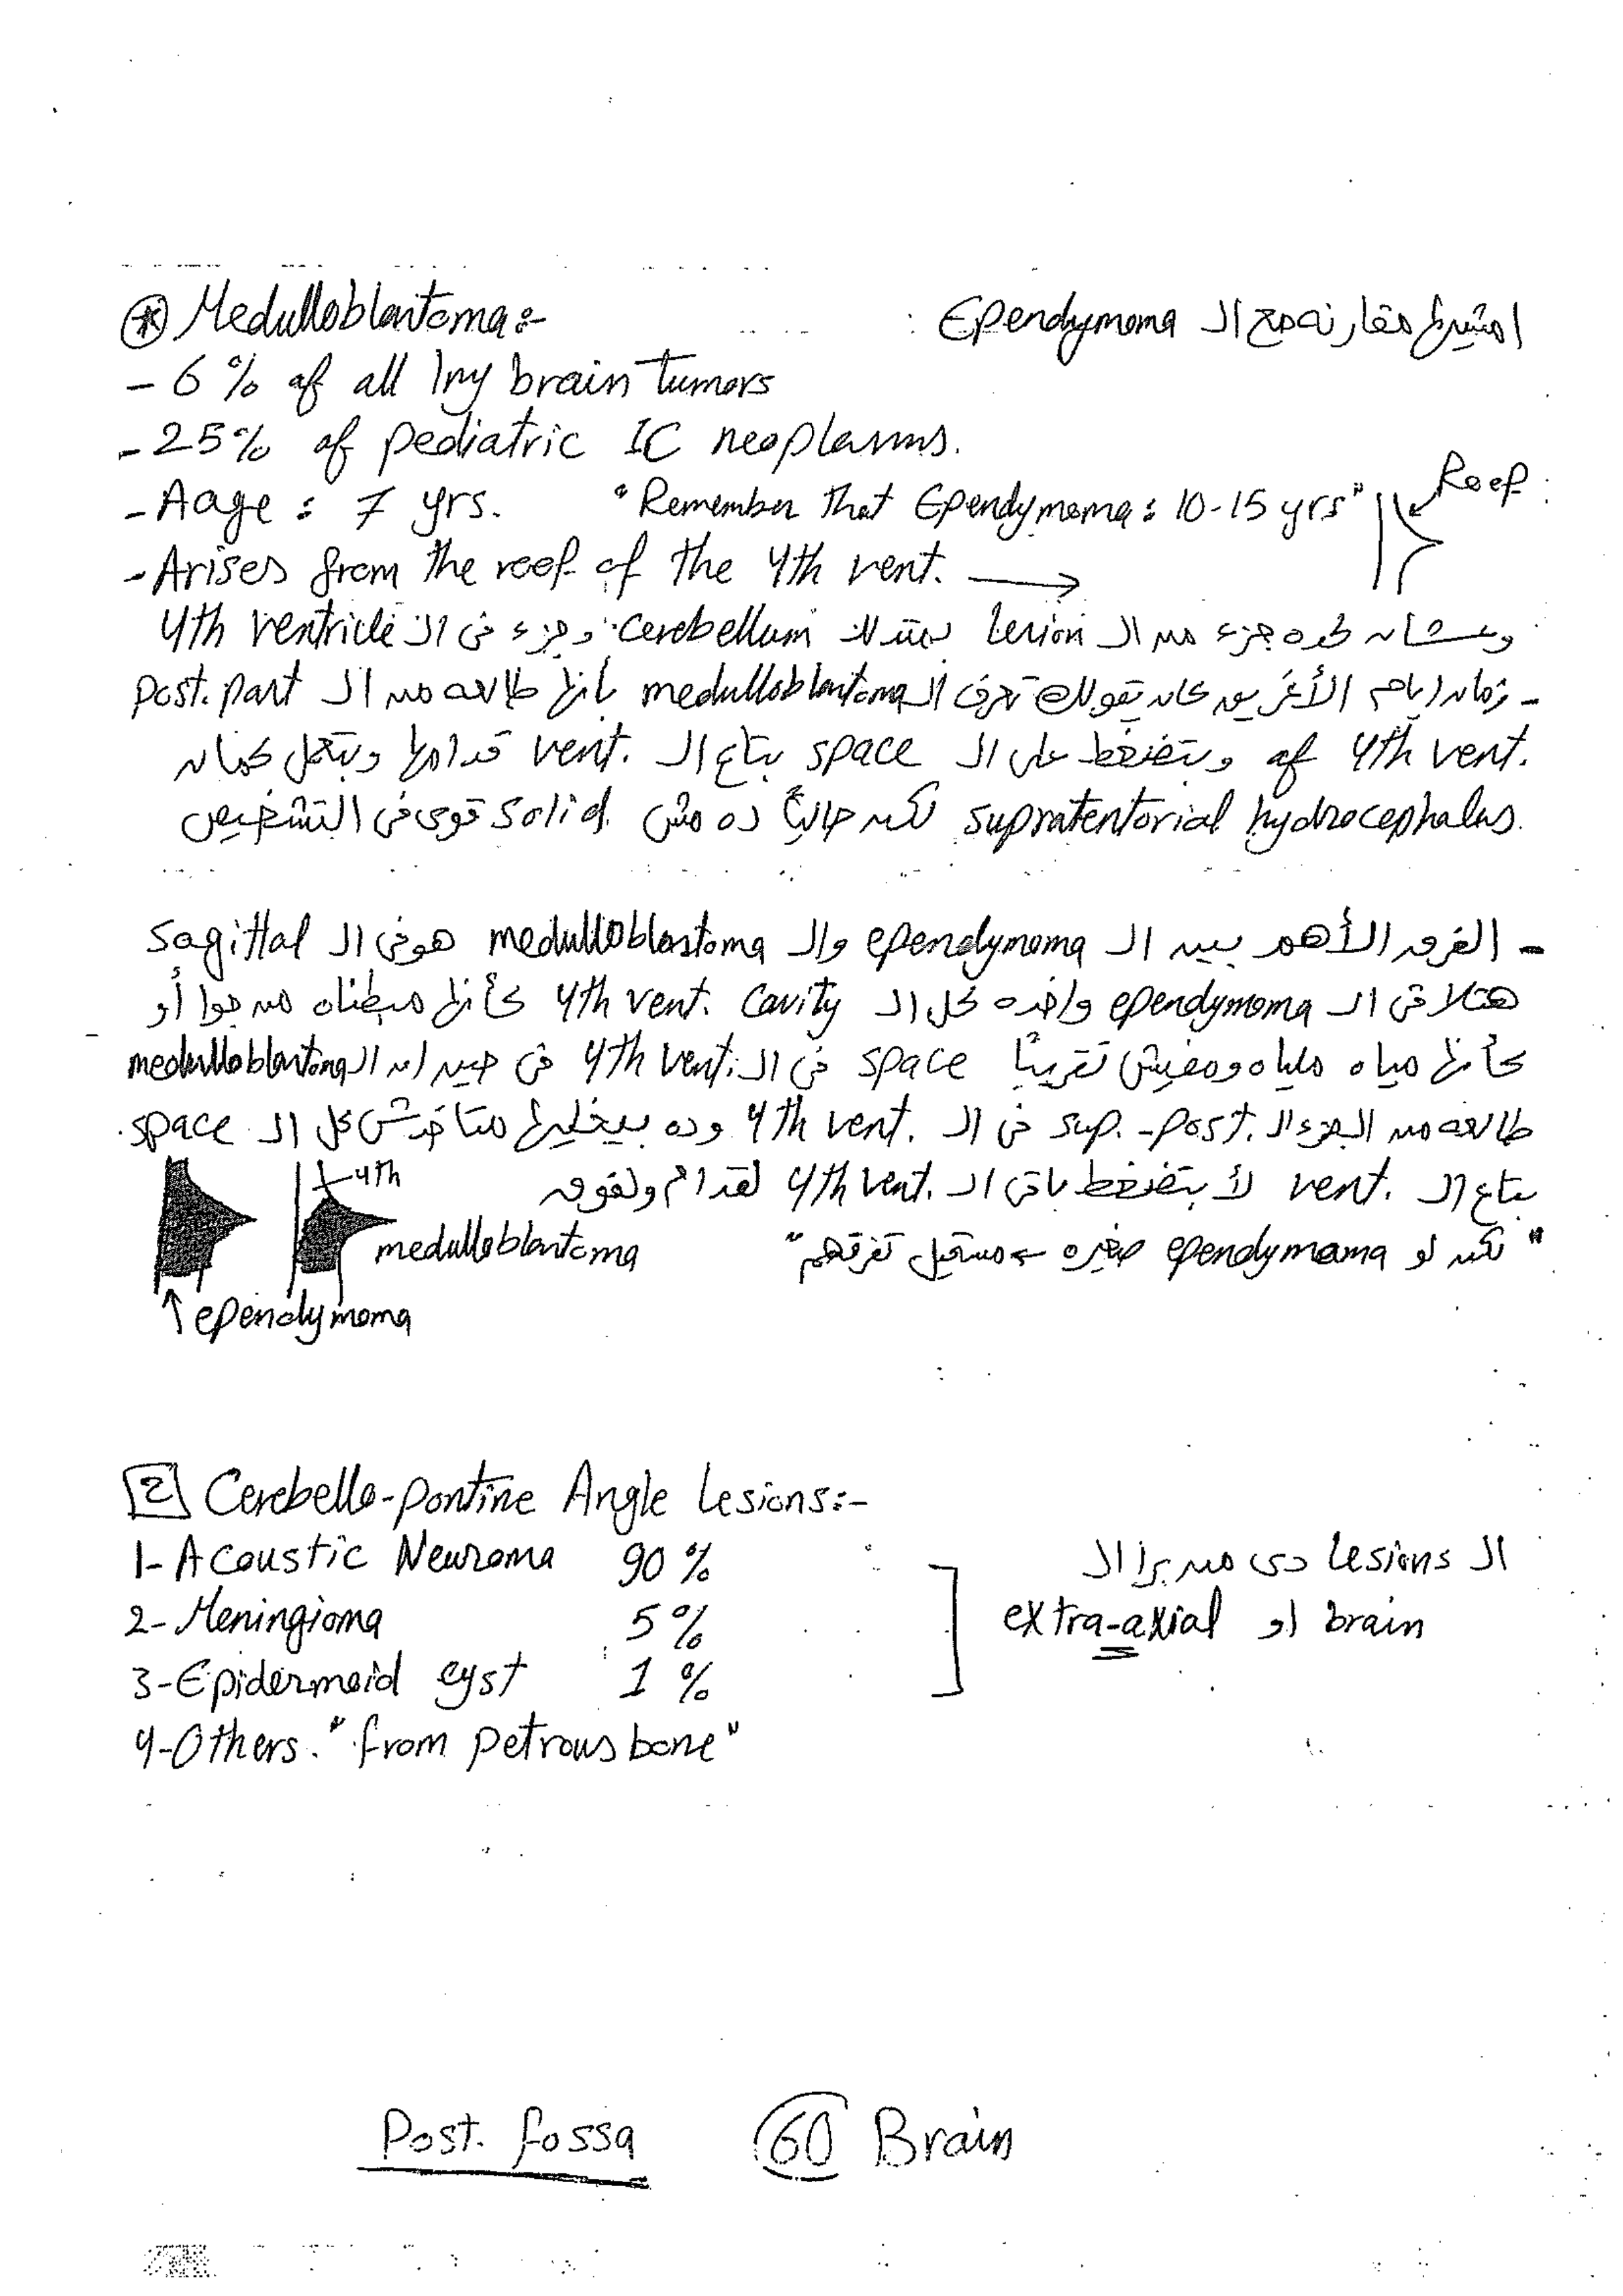 * Medulloblastoma:- امشيها مقارنه مع الـ Ependymoma
- 6 % of all 1ry brain tumors
- 25% of pediatric IC neoplasms.
- Aage : 7 yrs. "Remember that Ependymoma : 10-15 yrs" Roof
- Arises from the roof of the 4th vent. →
وعشان كده جزء من الـ lesion بيتدلك cerebellum وجزء فى الـ 4th ventricle
- زمان ايام الأغريق كان يقولك تعرف الـ medulloblastoma بأنها طالعه من الـ post. part
of 4th vent. وبتضغط على الـ space بتاع الـ vent. قدامها وبتعمل كمان
supratentorial hydrocephalus. لكن حالياً ده مش solid قوى فى التشخيص
- الفرق الأهم بين الـ ependymoma والـ medulloblastoma هو فى الـ sagittal
هتلاقى الـ ependymoma واخده كل الـ 4th vent. cavity كأنها مبطناه من جوا أو
كأنها مياه ملياه ومفيش تقريباً space فى الـ 4th vent. فى حين ان الـ medulloblastoma
طالعه من الجزء الـ sup. - post. فى الـ 4th vent. وده بيخليها متاخدش كل الـ space.
بتاع الـ vent. لأ بتضغط باقى الـ 4th vent. لقدام ولفوق
"لكن لو ependymoma صغيره ← مستحيل تفرقهم"
4th
medulloblastoma
↑ ependymoma
2 Cerebello-pontine Angle Lesions:-
1- Acoustic Neuroma 90 %
2- Meningioma 5 %
3- Epidermoid cyst 1 %
4- Others. "from petrous bone"
الـ lesions دى من برا الـ
brain او extra-axial
Post. fossa 60 Brain